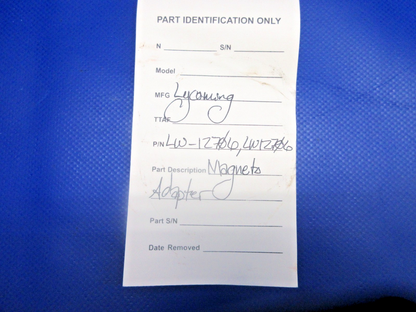 PART IDENTIFICATION ONLY
N ________ S/N ________
Model ________
MFG Lycoming
TTAF
P/N LW-12706, LW12706
Part Description Magneto
Adapter
Part S/N ________
Date Removed ________